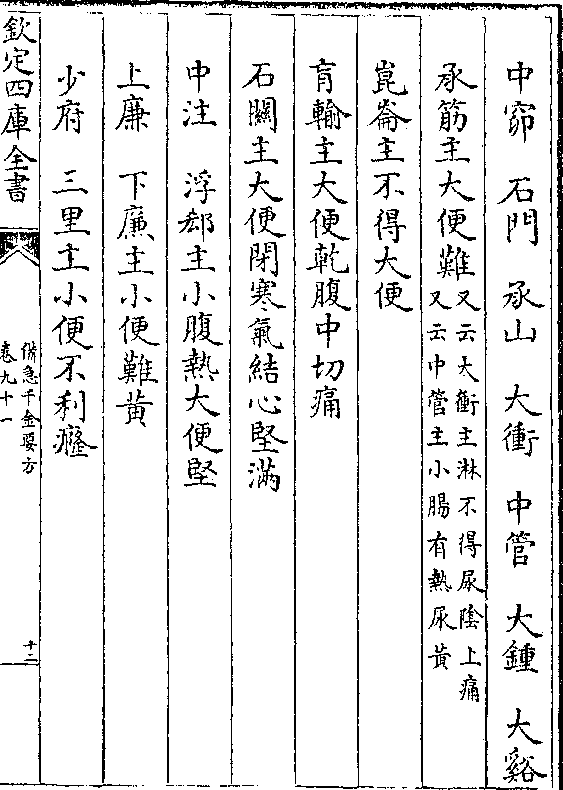 中窌　石門　承山　大衝　中管　大鍾　大谿
承筋主大便難又云大衝主淋不得尿陰上痛
又云中管主小腸有熱尿黃
崑崙主不得大便
肓輸主大便乾腹中切痛
石關主大便閉寒氣結心堅滿
中注　浮郄主小腹熱大便堅
上廉　下廉主小便難黃
少府　三里主小便不利癃
欽定四庫全書
備急千金要方
卷九十一
十二